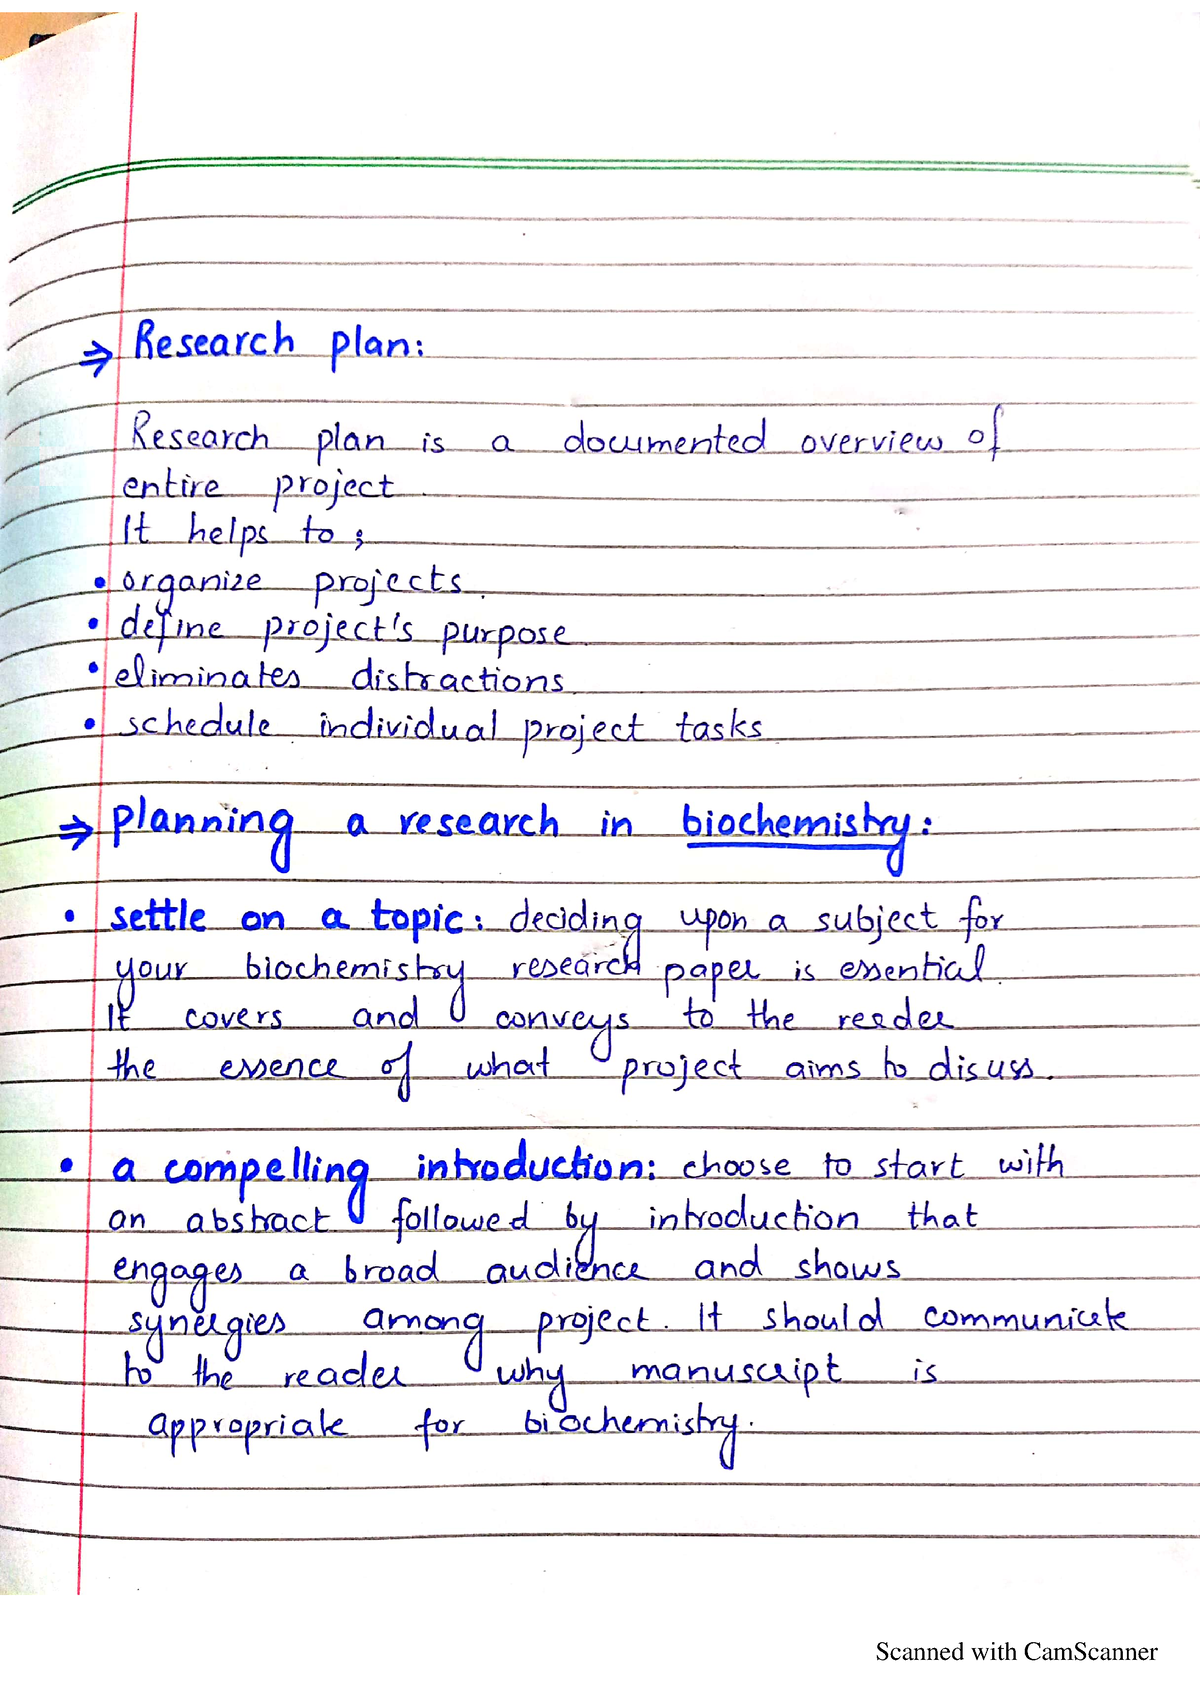 ⇒ Research plan:
Research plan is a documented overview of
entire project
It helps to ;
• organize projects.
• define project's purpose.
• eliminates distractions.
• schedule individual project tasks
⇒ planning a research in biochemistry:
• settle on a topic: deciding upon a subject for
your biochemistry research paper is essential.
It covers and conveys to the reader
the essence of what project aims to discuss.
• a compelling introduction: choose to start with
an abstract followed by introduction that
engages a broad audience and shows
synergies among project. It should communicate
to the reader why manuscript is
appropriate for biochemistry.
Scanned with CamScanner